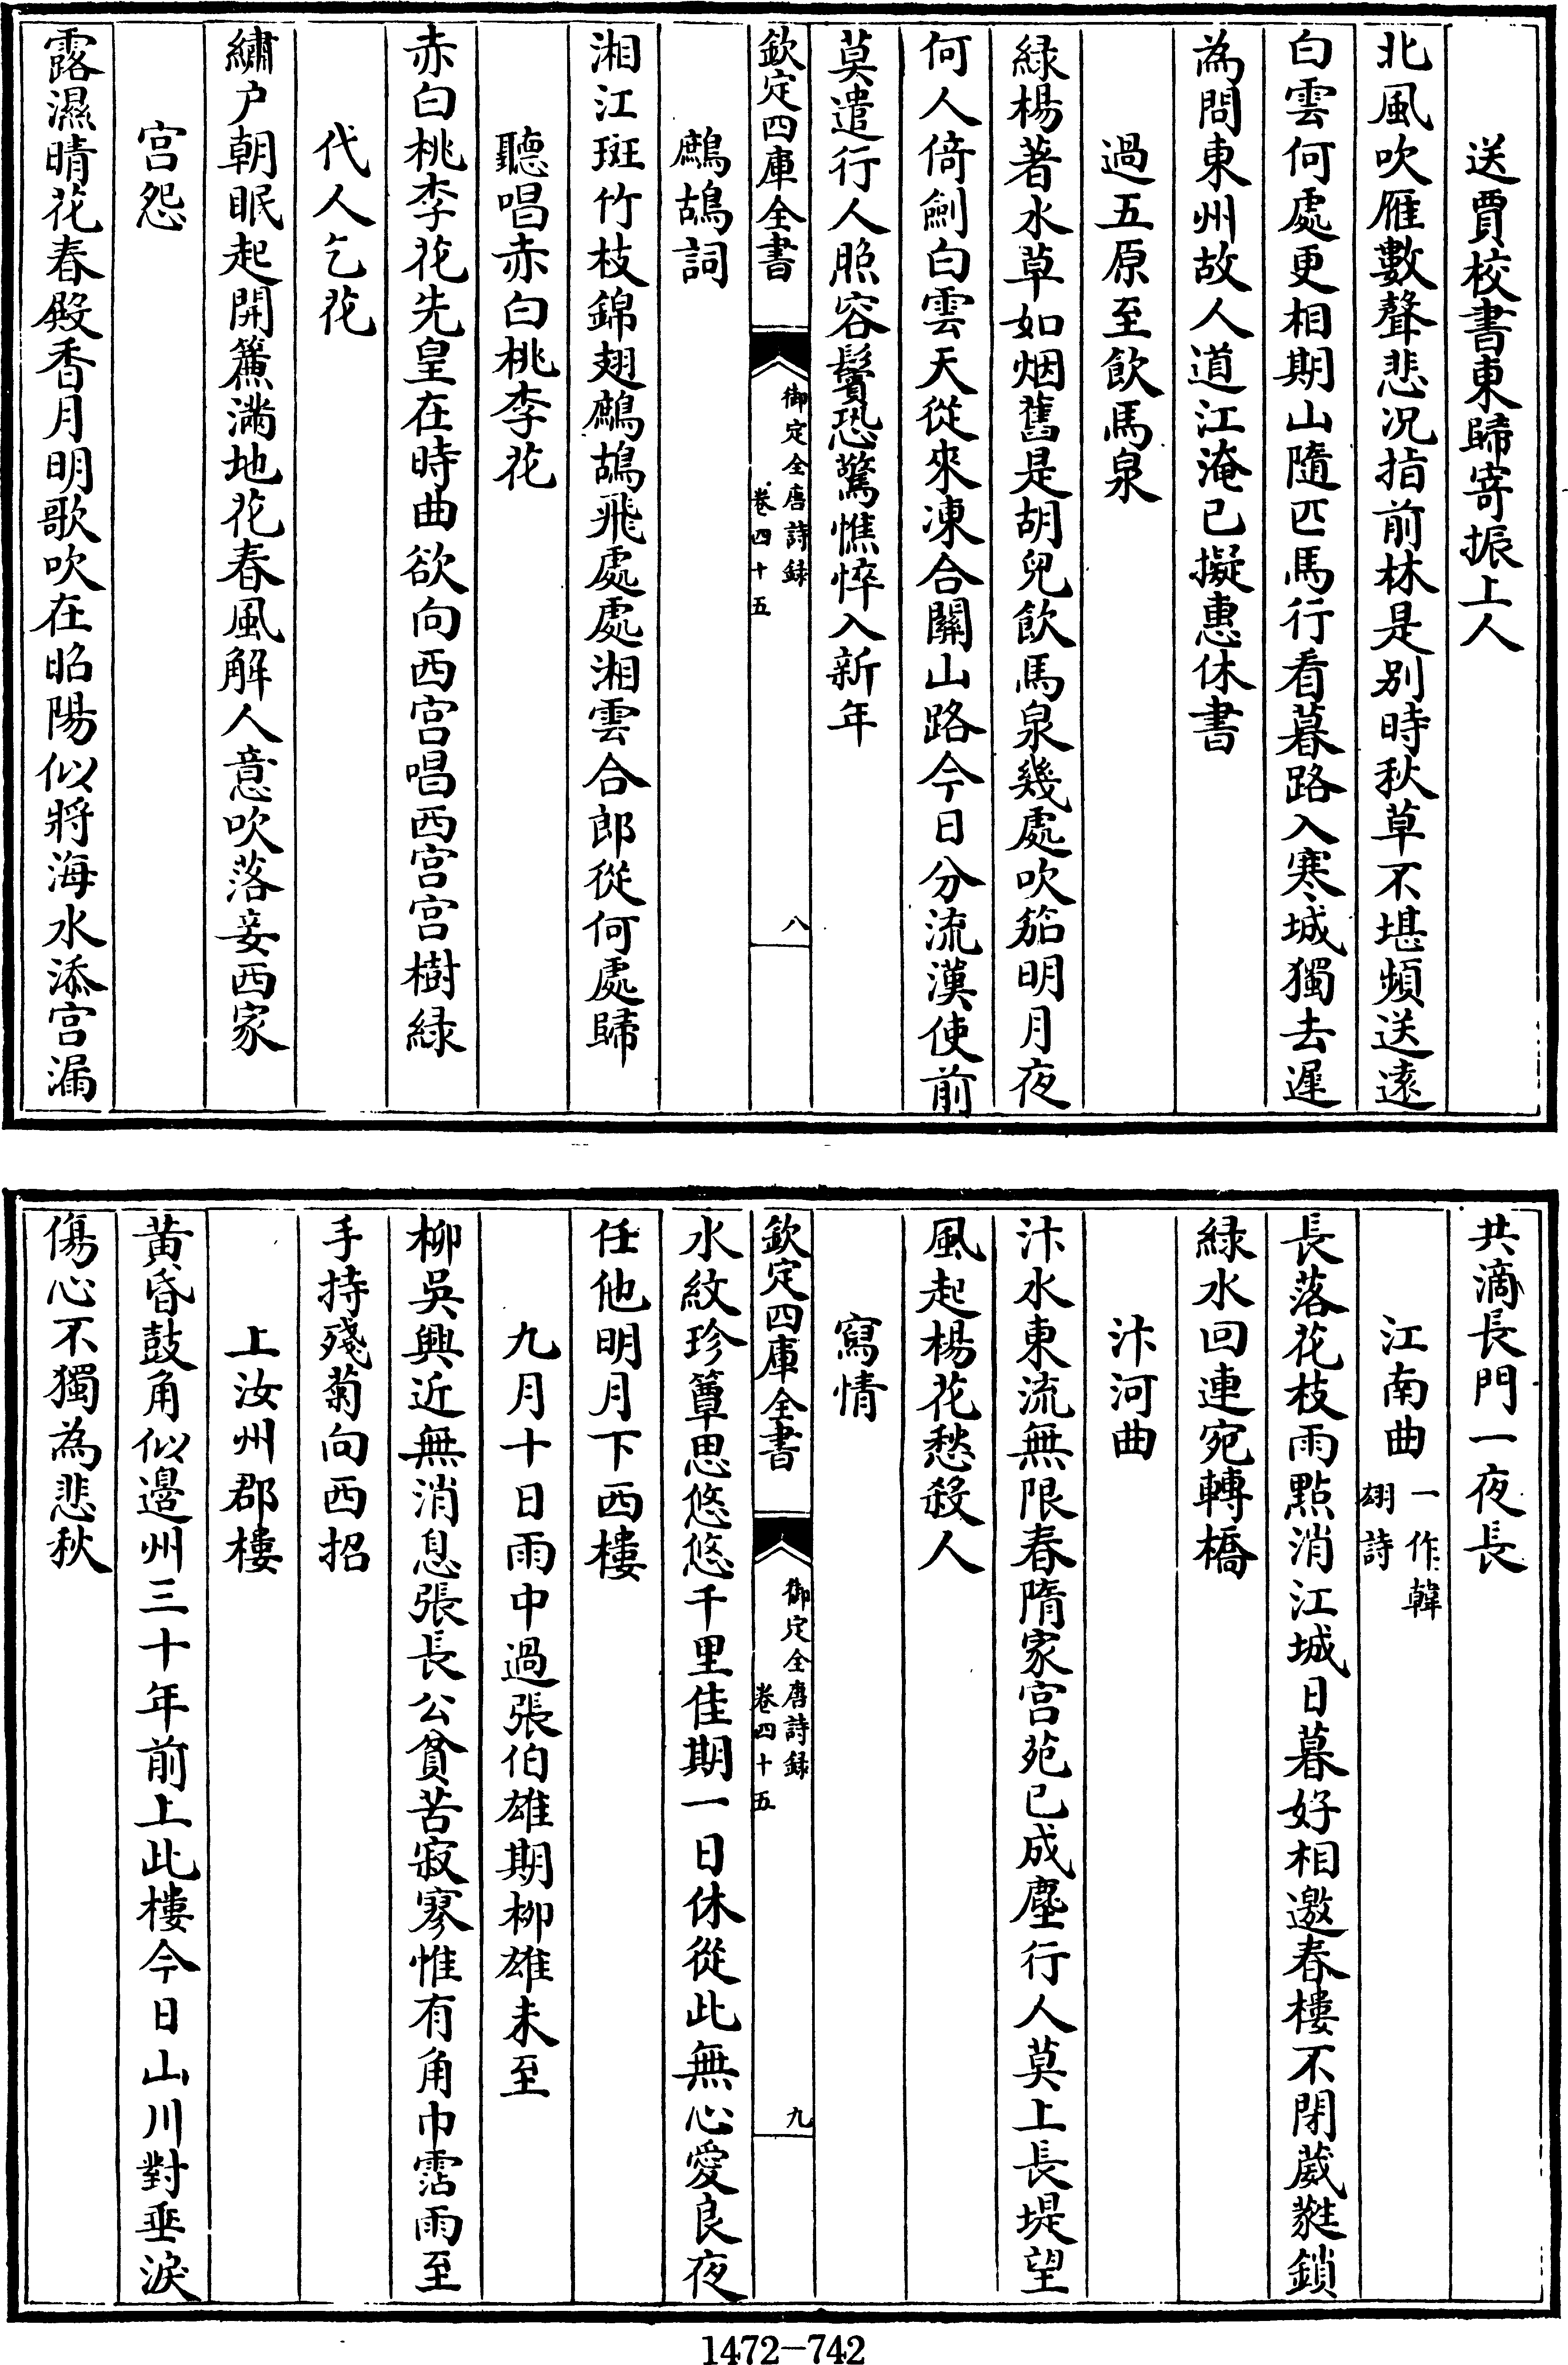 送賈校書東歸寄振上人
北風吹雁數聲悲况指前林是别時秋草不堪頻送遠
白雲何處更相期山隨匹馬行看暮路入寒城獨去遲
為問東州故人道江淹已擬惠休書
過五原至飲馬泉
緑楊著水草如烟舊是胡兒飲馬泉幾處吹笳明月夜
何人倚劍白雲天從來凍合關山路今日分流漢使前
莫遣行人照容鬢恐驚憔悴入新年
欽定四庫全書
御定全唐詩録
卷四十五
八
鷓鴣詞
湘江斑竹枝錦翅鷓鴣飛處處湘雲合郎從何處歸
聽唱赤白桃李花
赤白桃李花先皇在時曲欲向西宫唱西宫宫樹緑
代人乞花
繡户朝眠起開簾滿地花春風解人意吹落妾西家
宫怨
露濕晴花春殿香月明歌吹在昭陽似將海水添宫漏
共滴長門一夜長
江南曲
一作韓
翃詩
長落花枝雨點消江城日暮好相邀春樓不閉葳蕤鎖
緑水回連宛轉橋
汴河曲
汴水東流無限春隋家宫苑已成塵行人莫上長堤望
風起楊花愁殺人
寫情
欽定四庫全書
御定全唐詩録
卷四十五
九
水紋珍簟思悠悠千里佳期一日休從此無心愛良夜
任他明月下西樓
九月十日雨中過張伯雄期柳雄未至
柳吳興近無消息張長公貧苦寂寥惟有角巾霑雨至
手持殘菊向西招
上汝州郡樓
黄昏鼓角似邊州三十年前上此樓今日山川對垂淚
傷心不獨為悲秋
1472—742